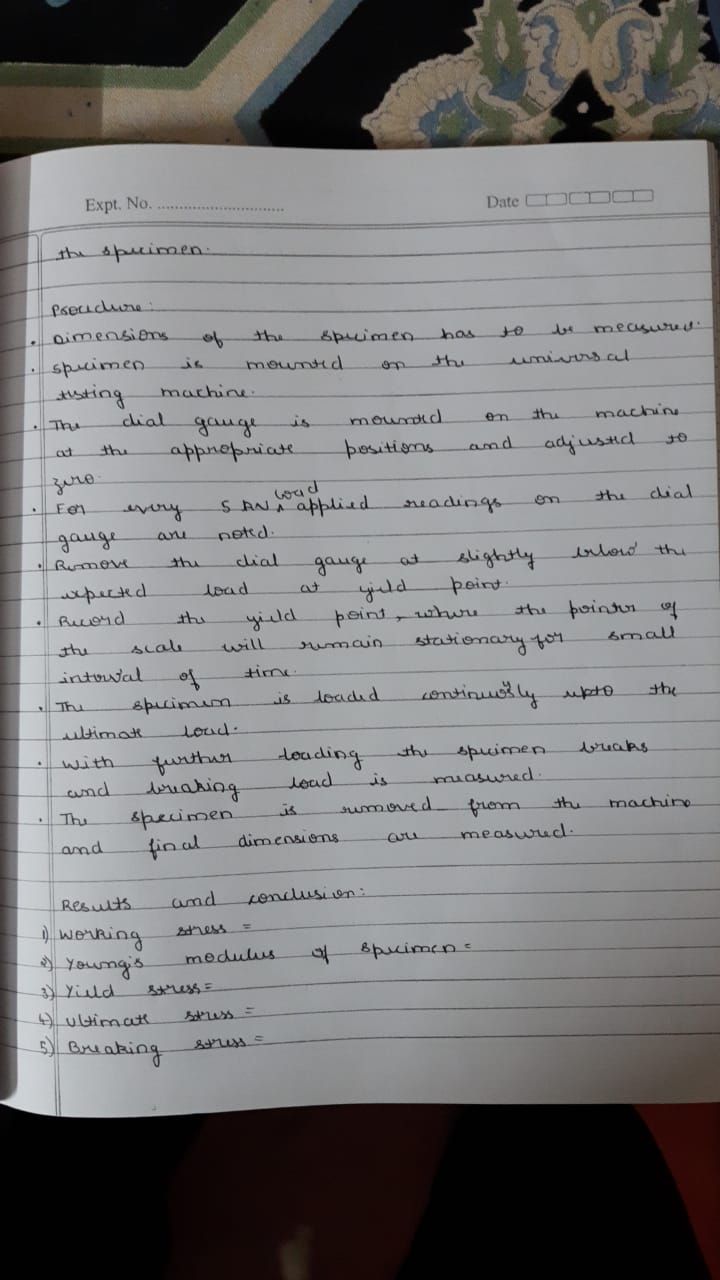 Expt. No. ..............................
Date
the specimen.
Procedure:
. Dimensions of the specimen has to be measured.
. specimen is mounted on the universal
testing machine.
. The dial gauge is mounted on the machine
at the appropriate positions and adjusted to
zero.
load
. For every 5 applied readings on the dial
gauge are noted.
. Remove the dial gauge at slightly below the
expected load at yield point.
. Record the yield point, where the pointer of
the scale will remain stationary for small
interval of time.
. The specimen is loaded continuously upto the
ultimate load.
. with further loading the specimen breaks
and breaking load is measured.
. The specimen is removed from the machine
and final dimensions are measured.
Results and conclusion:
1) Working stress =
2) Young's modulus of specimen =
3) Yield stress =
4) Ultimate stress =
5) Breaking stress =